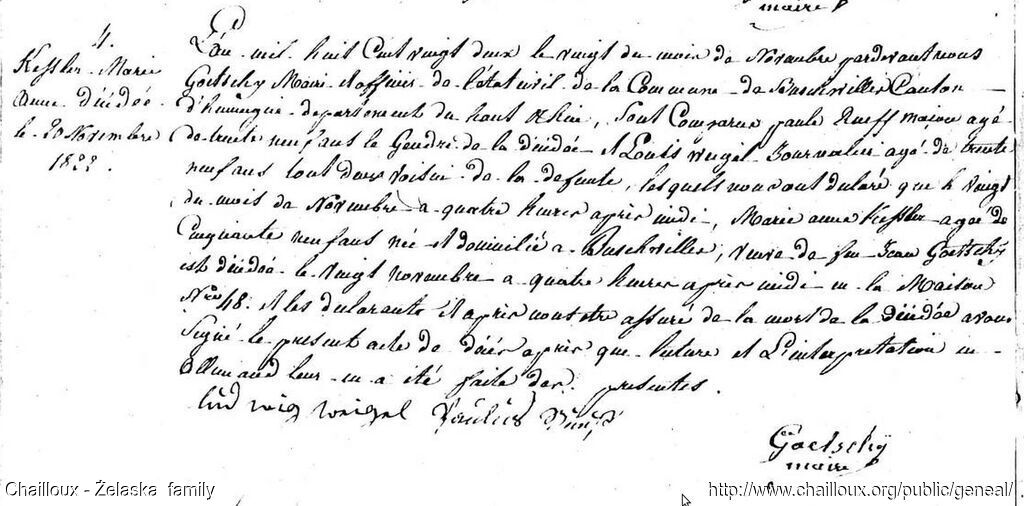 maire
4.
Kessler Marie
Anne décédée
le 20 Novembre
1822.
L'an mil huit Cent vingt deux le vingt du mois de Novembre pardevant nous
Goetschy Maire et officier de l'état civil de la Commune de Buschviller Canton
d'huningue departement du haut Rhin, sont Comparus paule Rueff maçon agé
de trente neuf ans le Gendre de la décédée et Louis weigel Journalier agé de trente
neuf ans tout deux voisin de la defunte, lesquels nous ont déclaré que le vingt
du mois de Novembre a quatre heures après midi, Marie anne Kessler agée de
Cinquante neuf ans née et domicilié a Buschviller, veuve de feu Jean Goetschy
est décédée le vingt novembre a quatre heures après midi en la Maison
Nro 48. et les declarants et après nous etre assuré de la mort de la décédée avons
Signé le present acte de décès après que lecture et L'interpretation en
allemand leur en a été faite des presentes.
Ludwig weigel Paulus
Goetschÿ
maire
Chailloux - Żelaska family
http://www.chailloux.org/public/geneal/